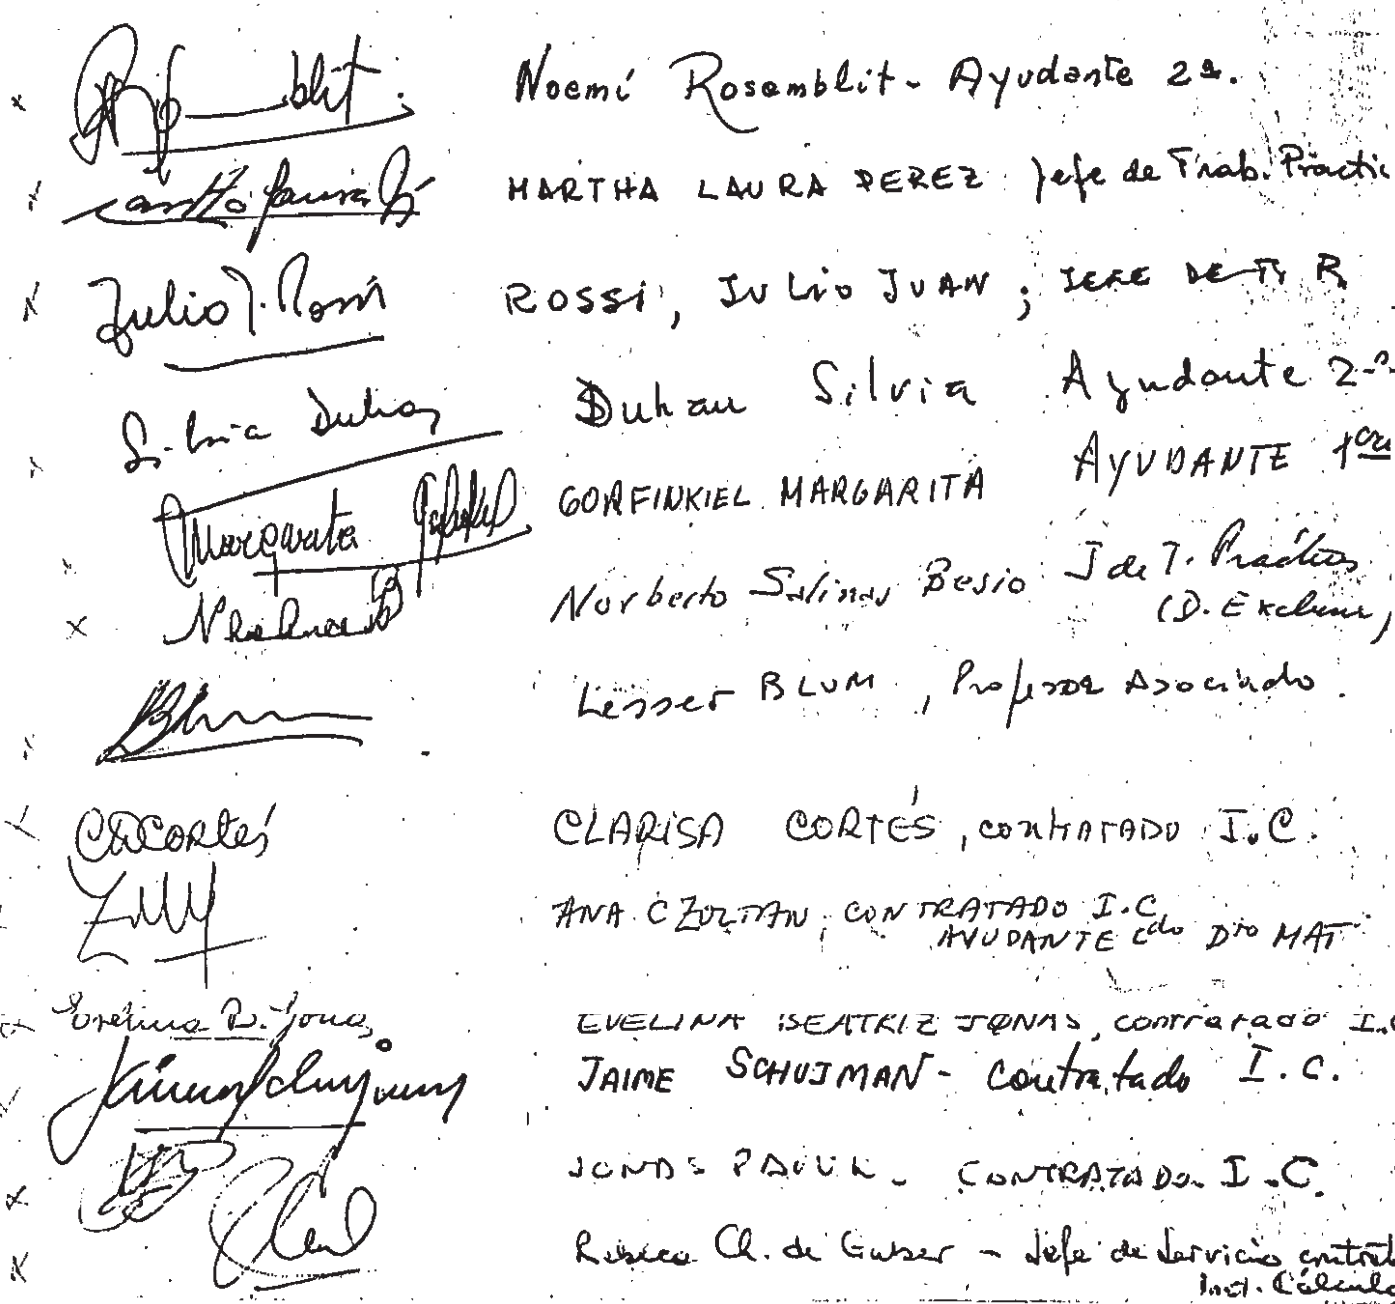 Noemí Rosemblit - Ayudante 2ª.
MARTHA LAURA PEREZ Jefe de Trab. Practic
Julio J. Rossi ROSSI, JULIO JUAN; JEFE DE T. P.
Silvia Duhau Duhau Silvia Ayudante 2ª
Margarita Gorfinkiel GORFINKIEL MARGARITA AYUDANTE 1era
Norberto Salinas Besio J de T. Prácticos
(D. Exclusiva)
Blum Lesser BLUM, Profesor Asociado.
C CORTés CLARISA CORTÉS, CONTRATADO I.C.
ANA C ZOLTAN, CONTRATADO I.C.
AYUDANTE 2do Dto MAT
Evelina B. Jonas EVELINA BEATRIZ JONAS, contratado I.C
Jaime Schujman JAIME SCHUJMAN - Contratado I.C.
JONAS PAUL - CONTRATADO I.C.
Rebeca Ch. de Guber - Jefe de Servicio contrat
Inst. Cálculo